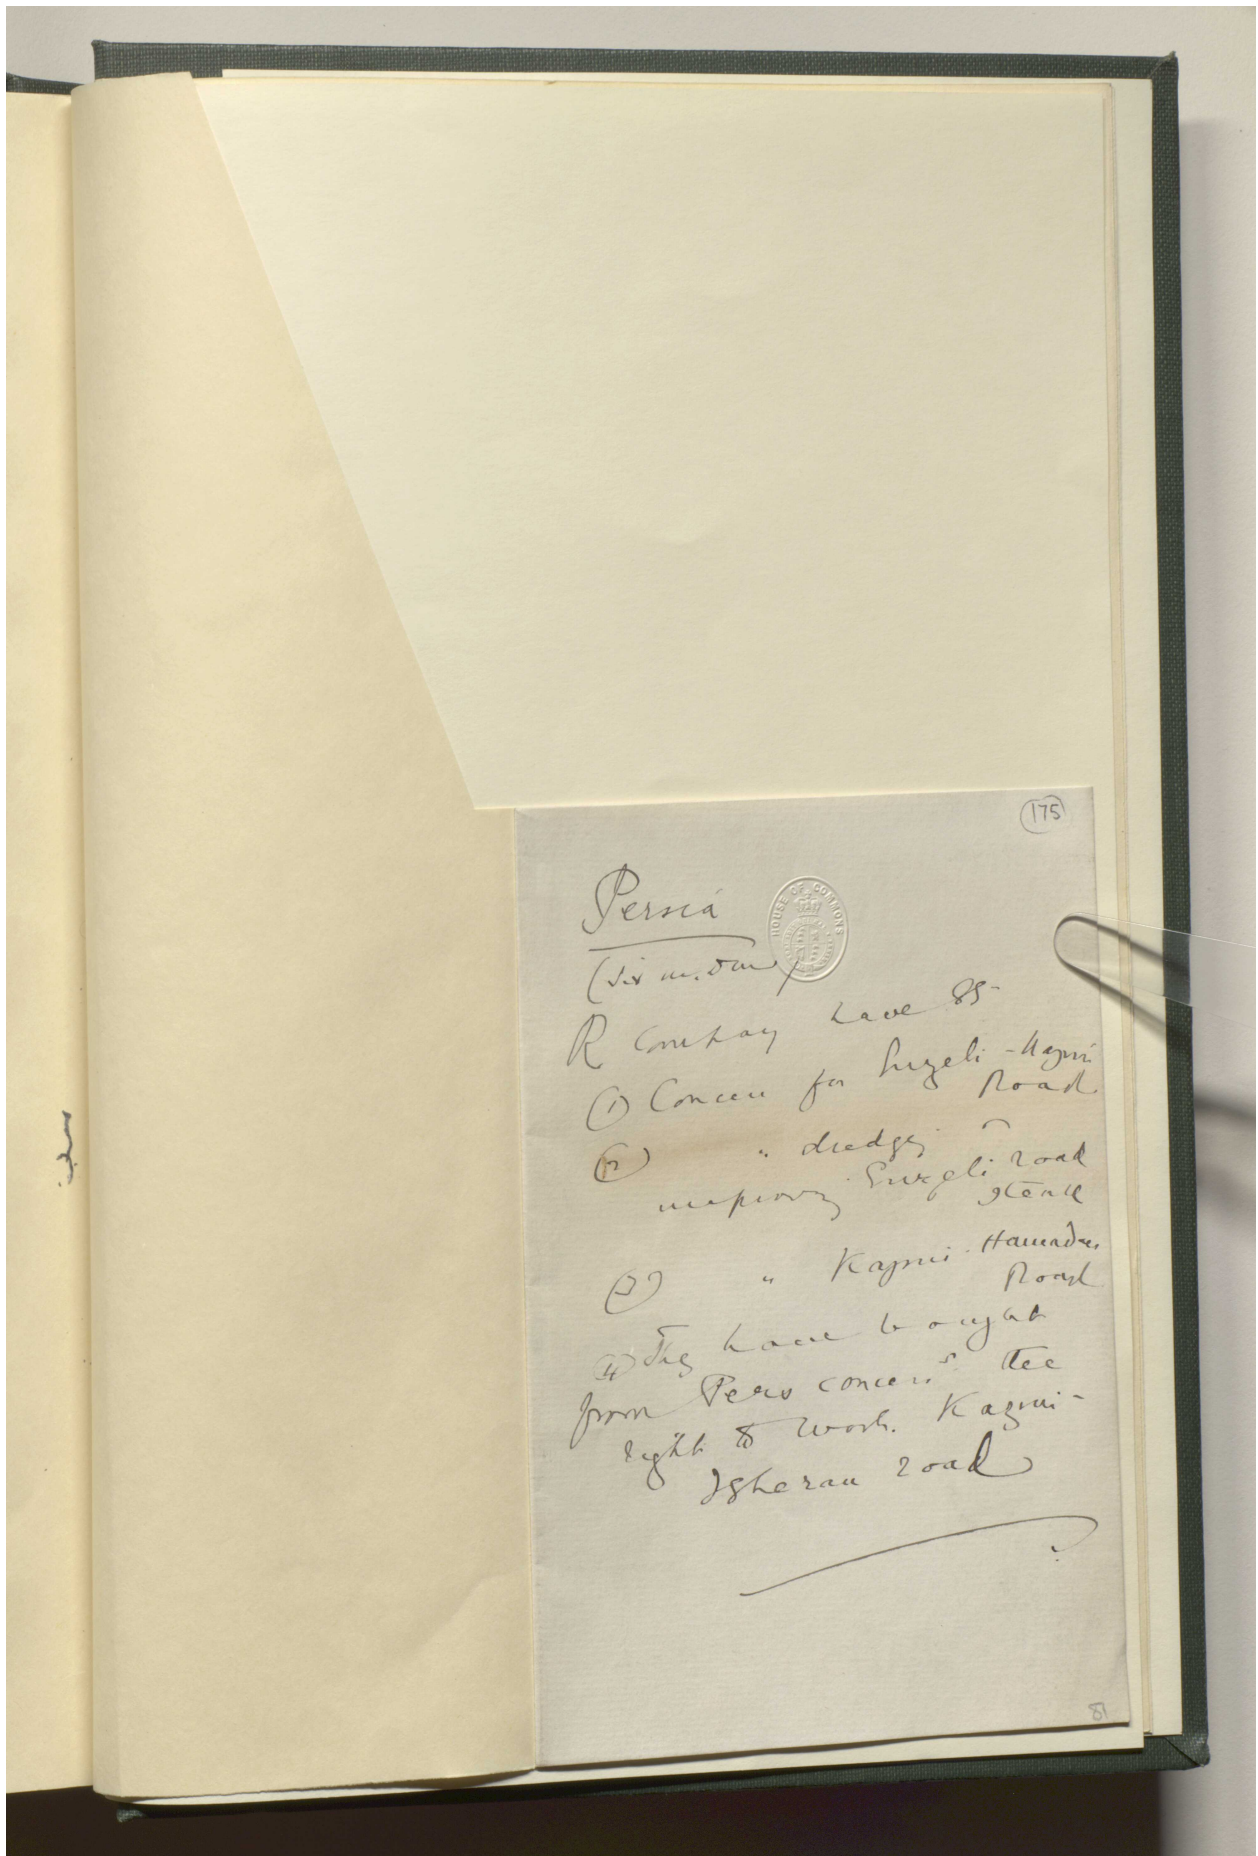 175
Persia
HOUSE OF COMMONS
(Sir M. Dur)
R Company have 85
(1) Concess for Enzeli - Kazvin
Road
(2) " dredgg
improvg Enzeli road
stead
(3) " Kazvin - Hamadan
Road
(4) They have bought
from Pers concess the
right to work Kazvin -
Teheran road
81